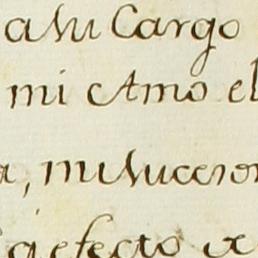 a su Cargo
mi Amo el
a, mi suceson
q efecto